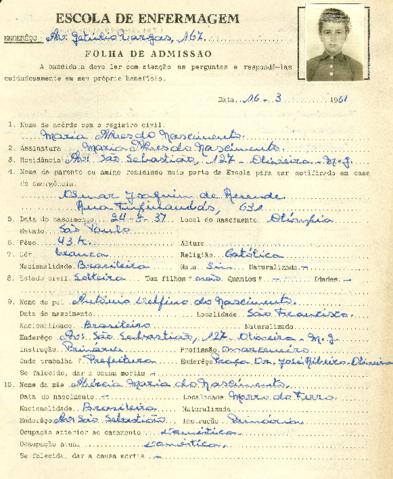 ESCOLA DE ENFERMAGEM
ENDERÊÇO Av. Getúlio Vargas, 167.
FOLHA DE ADMISSÃO
A candidata deve ler com atenção as perguntas e respondê-las
cuidadosamente em seu próprio benefício.
Data 16 - 3 1961
1. Nome de acôrdo com o registro civil.
Maria do Nascimento.
2. Assinatura Maria do Nascimento.
3. Residência Av. São Sebastião, 127 - Oliveira - M.G.
4. Nome do parente ou amigo residindo mais perto da Escola para ser notificado em caso
de emergência.
Osmar Joaquim de Resende
Rua 631
5. Data do nascimento 24-5-37 Local do nascimento Olímpia
Estado São Paulo
6. Pêso 43 k. Altura
7. Côr branca Religião Católica
Nacionalidade Brasileira Nata Sim Naturalizada -
8. Estado civil Solteira Tem filhos não Quantos - Idades -
9. Nome do pai Antônio do Nascimento.
Data do nascimento Localidade São Francisco.
Nacionalidade Brasileiro Naturalizado
Enderêço Av. São Sebastião, 127 - Oliveira - M.G.
Instrução Primária Profissão
Onde trabalha? Prefeitura Enderêço Praça Dr. José Ribeiro - Oliveira
Se falecido, dar a causa mortis -
10. Nome da mãe Maria do Nascimento.
Data do nascimento - Localidade Morro do Ferro
Nacionalidade Brasileira Naturalizada
Enderêço Av. São Sebastião Instrução Primária
Ocupação anterior ao casamento doméstica
Ocupação atual doméstica.
Se falecida, dar a causa mortis -